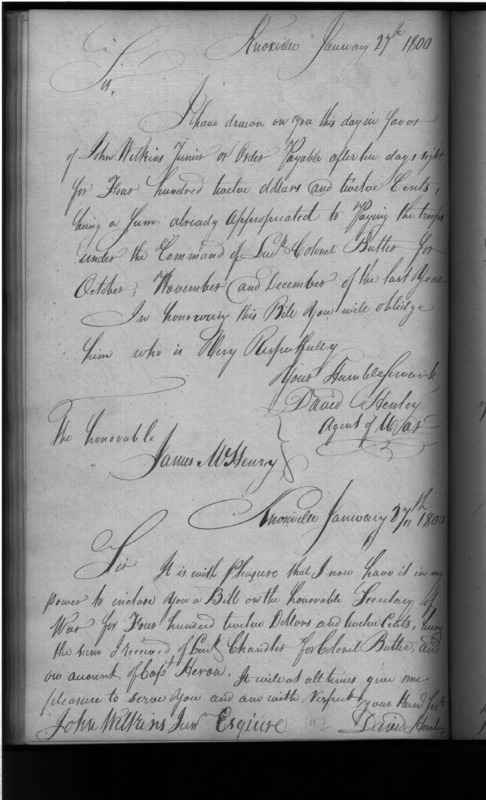 Knoxville January 27th 1800
Sir,
I have drawn on you this day in favor
of John Wilkins Junior or Order Payable after ten days sight
for Four hundred twelve dollars and twelve Cents,
being a Sum already appropriated to Paying the troops
under the Command of Lieut Colonel Butler for
October, November and December of the last Year
In honouring this Bill You will obliedge
him who is Very Respectfully
Your Humble Servant,
David Henley
Agent of War
The honorable
James McHenry
Knoxville January 27th 1800
Sir It is with Pleasure that I now have it in my
power to inclose You a Bill on the honorable Secretary of
War for Four hundred twelve Dollars and twelve Cents, being
the sum I received of Lieut Chandler for Colonel Butler, and
on amount of Capt Heron. It will at all times give me
pleasure to serve You and am with respect your Hum Servt
John Wilkins Junr Esquire David Henley